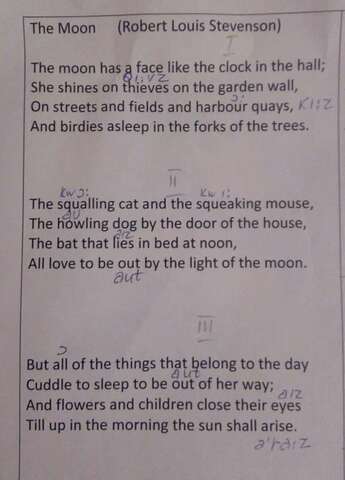 The Moon (Robert Louis Stevenson)
I
The moon has a face like the clock in the hall;
She shines on thieves on the garden wall,
On streets and fields and harbour quays, ki:z
And birdies asleep in the forks of the trees.
II
The squalling cat and the squeaking mouse,
The howling dog by the door of the house,
The bat that lies in bed at noon,
All love to be out by the light of the moon.
aut
III
But all of the things that belong to the day
aut
Cuddle to sleep to be out of her way;
aiz
And flowers and children close their eyes
Till up in the morning the sun shall arise.
ə'raiz